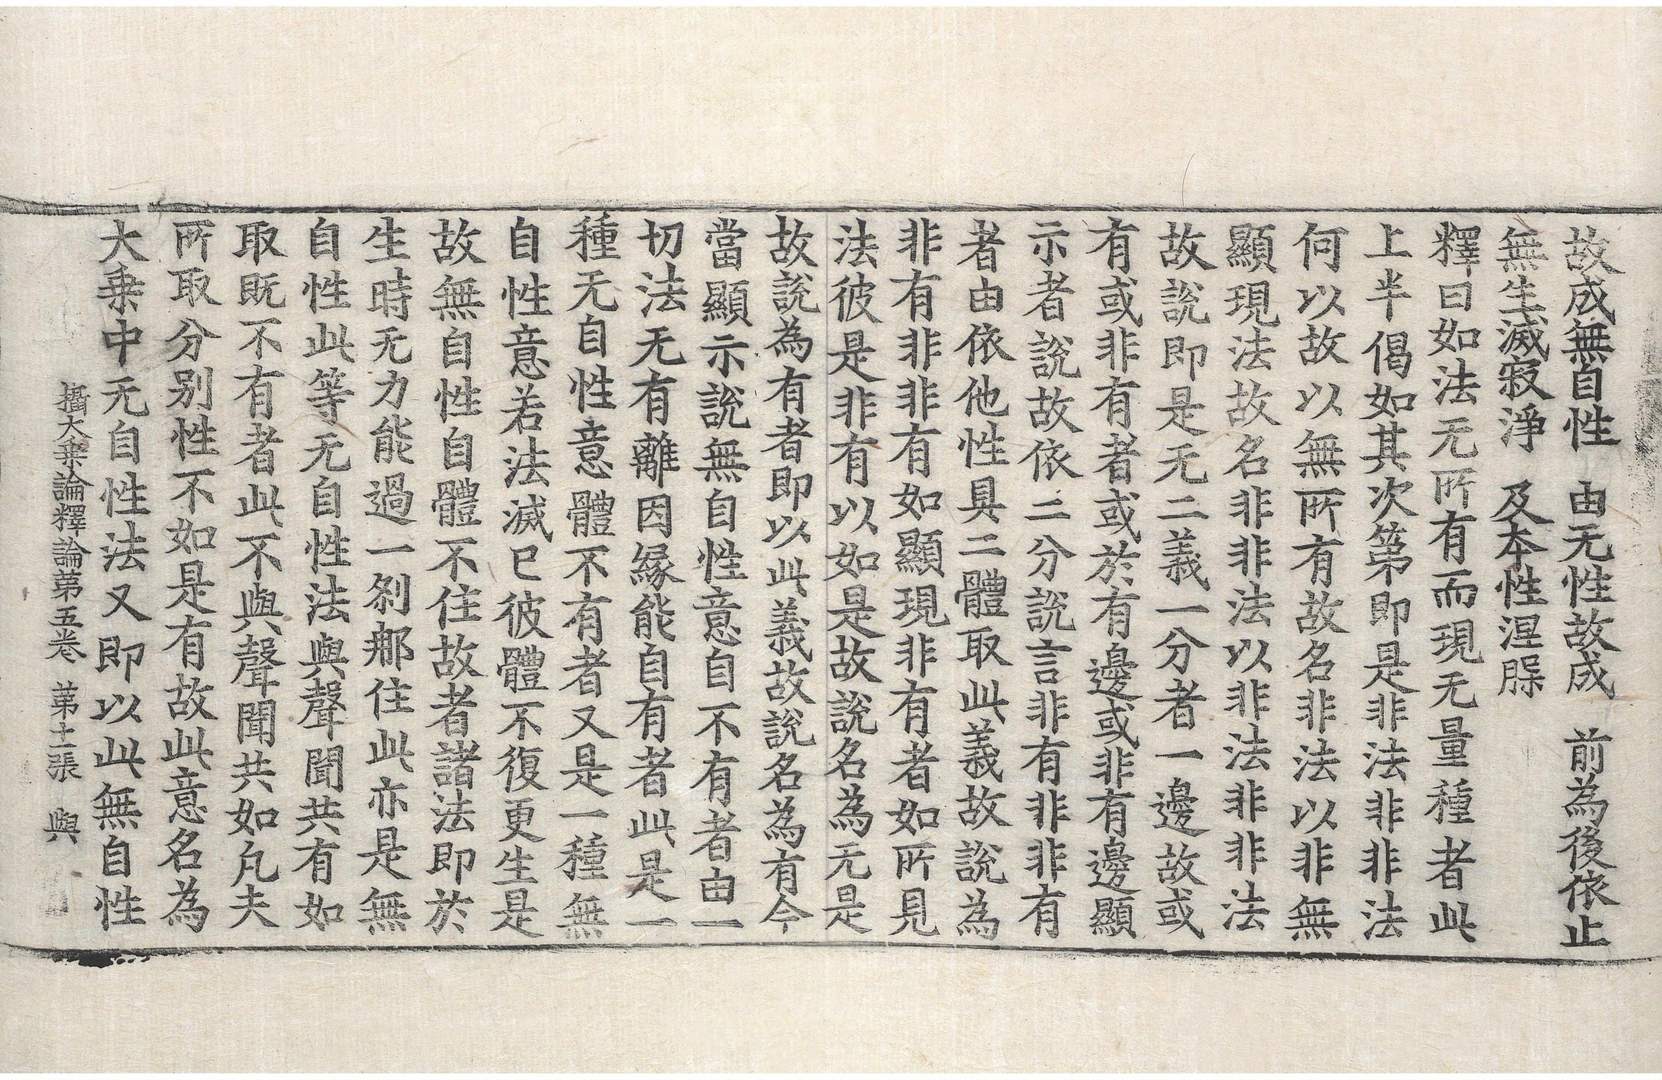 故成無自性　由无性故成　前為後依止
無生滅寂淨　及本性涅槃
釋曰如法无所有而現无量種者此
上半偈如其次第即是非法非非法
何以故以無所有故名非法以非無
顯現法故名非非法以非法非非法
故說即是无二義一分者一邊故或
有或非有者或於有邊或非有邊顯
示者說故依二分說言非有非非有
者由依他性具二體取此義故說為
非有非非有如顯現非有者如所見
法彼是非有以如是故說名為无是
故說為有者即以此義故說名為有今
當顯示說無自性意自不有者由一
切法无有離因緣能自有者此是一
種无自性意體不有者又是一種無
自性意若法滅已彼體不復更生是
故無自性自體不住故者諸法即於
生時无力能過一剎那住此亦是無
自性此等无自性法與聲聞共有如
取既不有者此不與聲聞共如凡夫
所取分別性不如是有故此意名為
大乗中无自性法又即以此無自性
攝大乗論釋論第五卷　第十二張　與